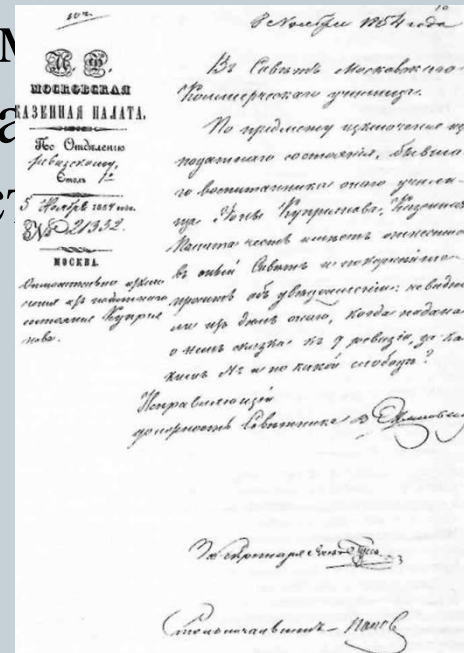 8 Ноября 1854 года
М. Ф.
МОСКОВСКАЯ
КАЗЕННАЯ ПАЛАТА.
По Отделенію
ревизскому,
Столъ 1й
5 Ноября 1854 года
№ 21352.
МОСКВА.
Относительно исклю
ченія изъ податнаго
состоянія Купріа
нова.
Въ Совѣтъ Московскаго
Коммерческаго училища.
По предмету исключенія из
податнаго состоянія, бывша
го воспитанника онаго учили
ща Купріанова, Казенная
Палата честь имѣетъ
въ оный Совѣтъ и покорнѣйше
проситъ объ увѣдомленіи: не видно
ли изъ дѣлъ онаго, когда подана
о немъ сказка къ 9 ревизіи, за ка
кимъ № и по какой слободѣ?
Исправляющій
должность Совѣтника
За Секретаря
Столоначальникъ Попов